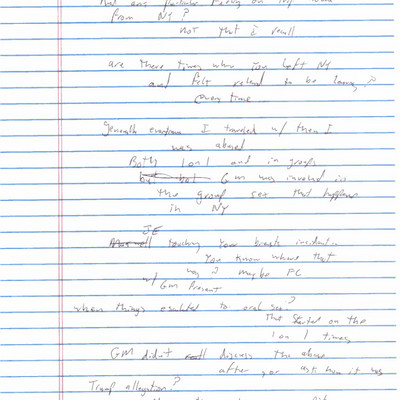 And any on trip home
from NY?
not that I recall
are there times when you left NY
and felt relieved to be leaving?
every time
Generally everytime I traveled w/ them I
was abused
Both 1 on 1 and in groups
GM was involved in
the group sex that happened
in NY
JE
touching your breasts incident
You know where that
was? maybe FL
w/ GM present
when things escalated to oral sex?
The started on the
1 on 1 times
GM didn't discuss the abuse
after, or ask how it was
Trump allegation?